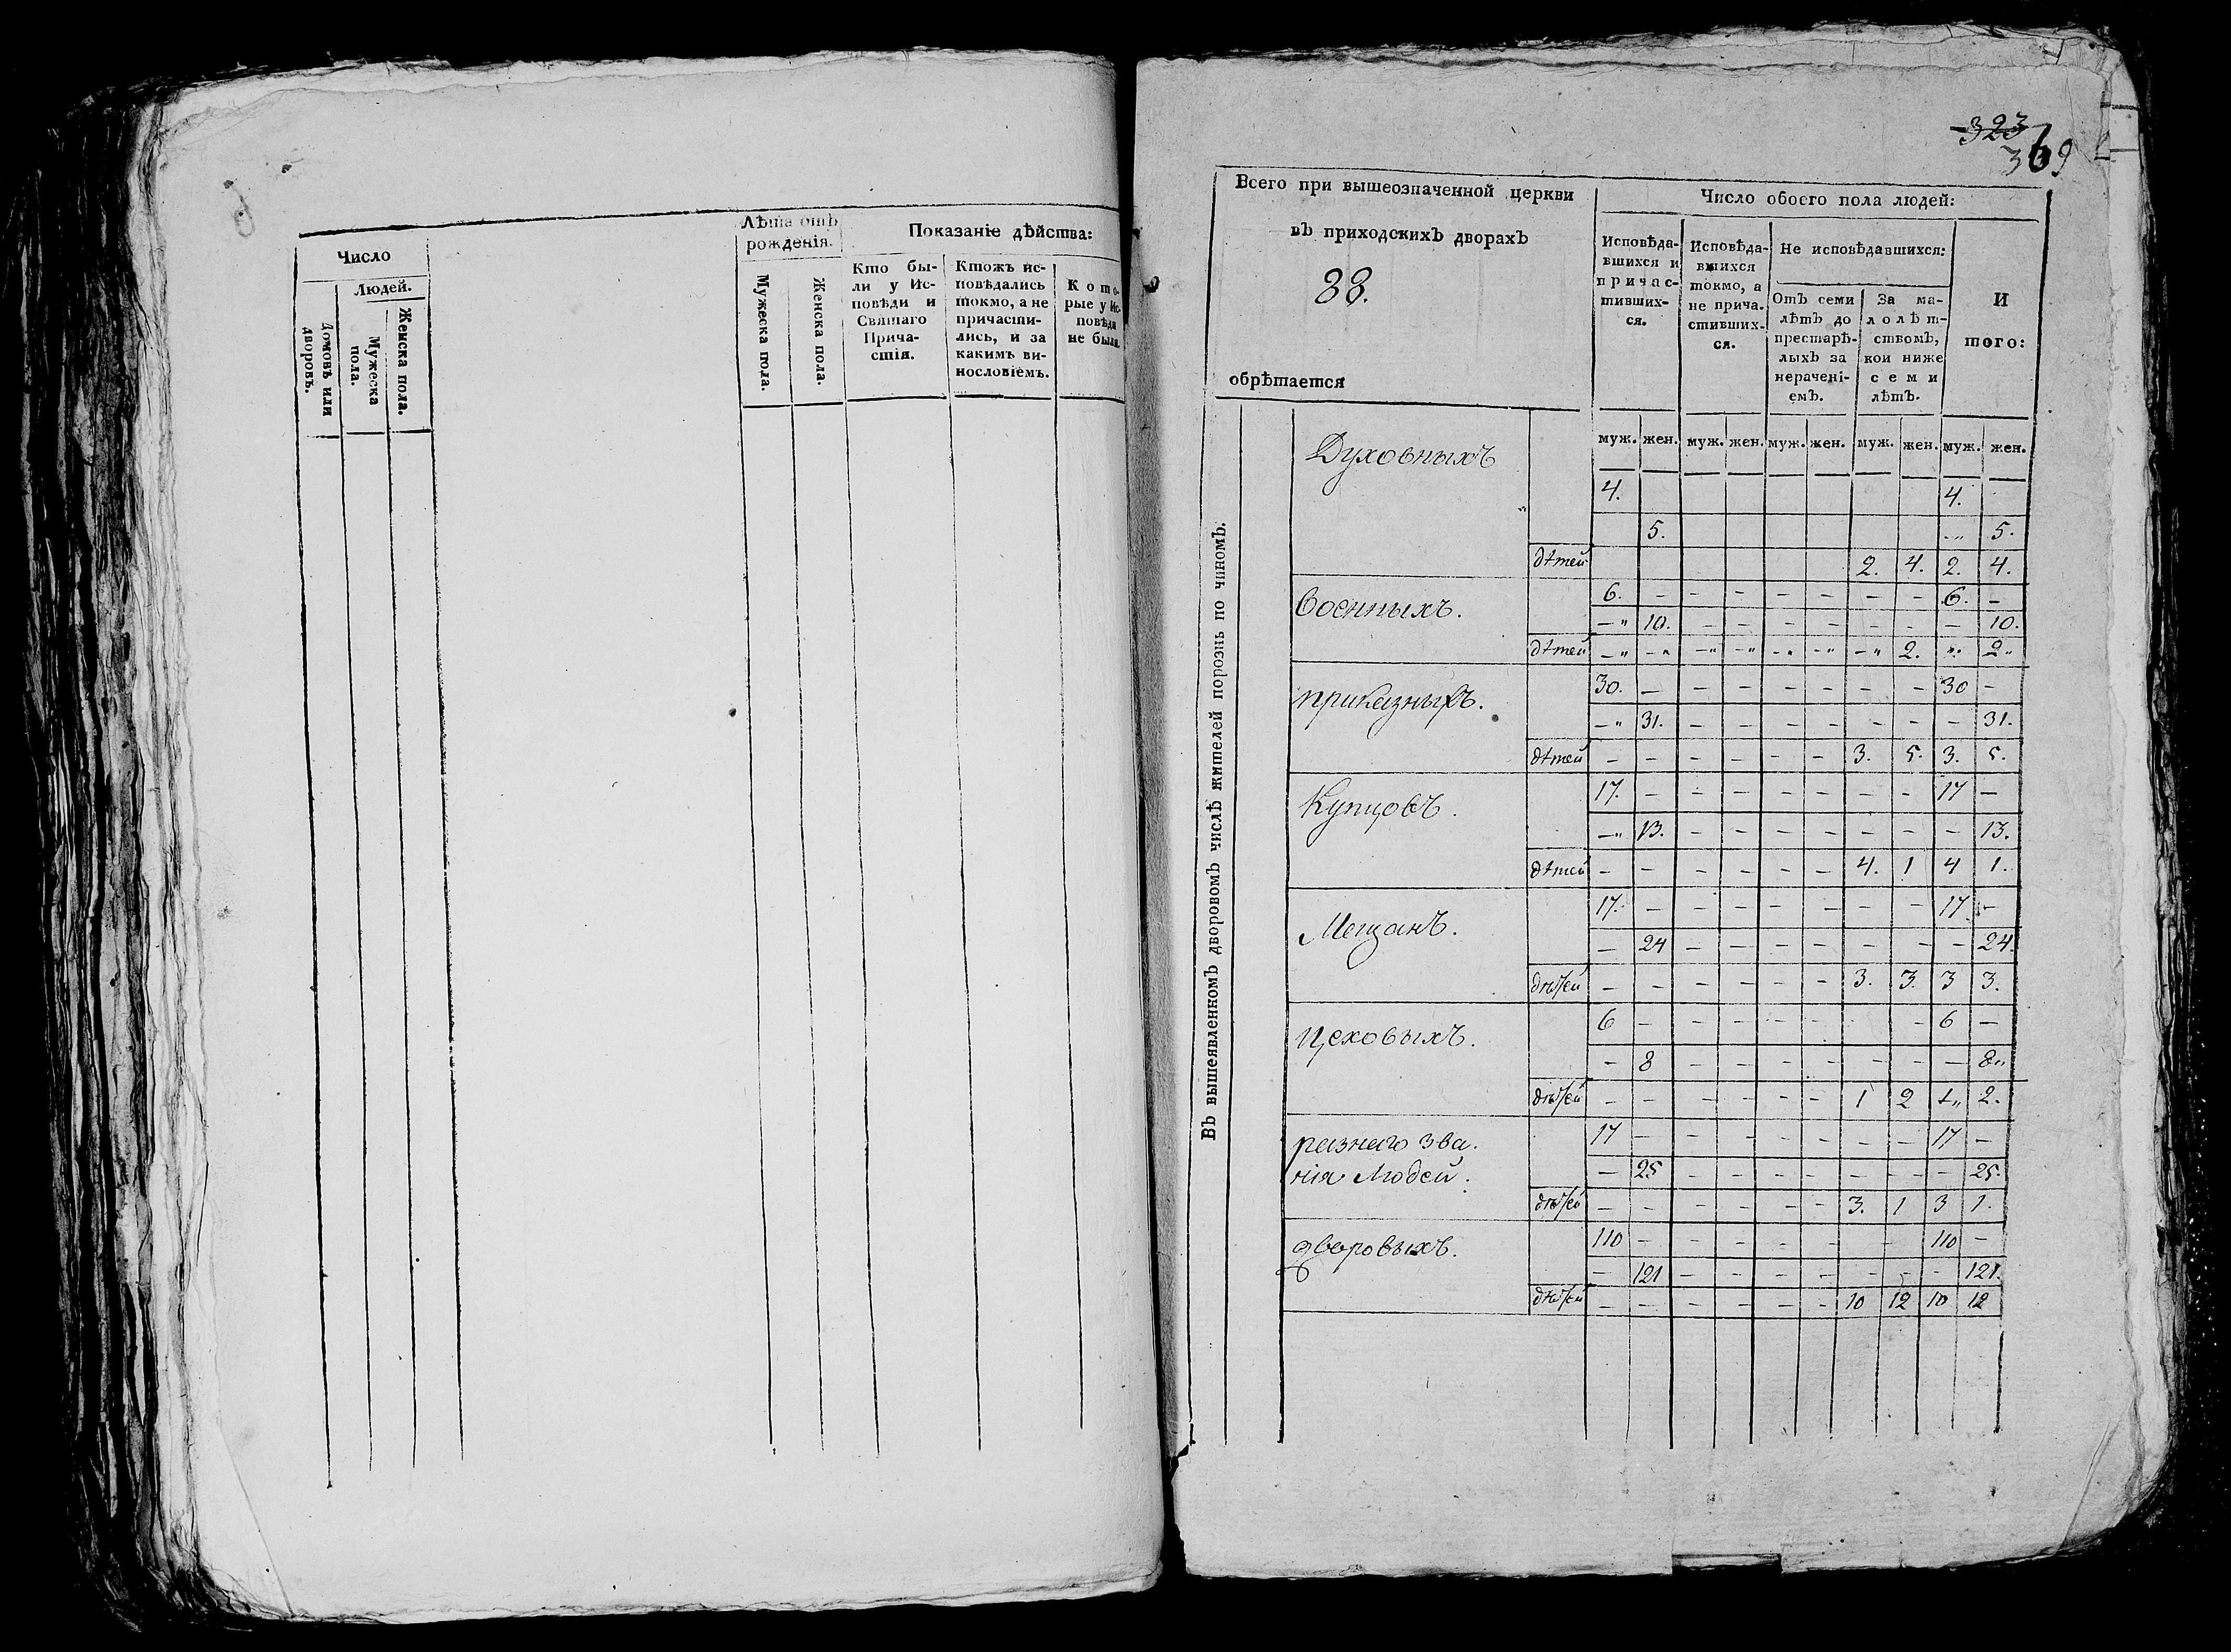 Число
Людей.
Домовъ или
дворовъ.
Мужеска
пола.
Женска пола.
Лѣта отъ
рожденія.
Мужеска пола.
Женска пола.
Показаніе дѣйства:
Кто бы-
ли у Ис-
повѣди и
Святаго
Прича-
стія.
Ктожъ ис-
повѣдались
токмо, а не
причасти-
лись, и за
какимъ ви-
нословіемъ.
Кото-
рые у Ис-
повѣди
не были.
323
369
Всего при вышеозначенной церкви
въ приходскихъ дворахъ
88.
обрѣтается
Число обоего пола людей:
Исповѣда-
вшихся и
причас-
тивших-
ся.
Исповѣда-
вшихся
токмо, а
не прича-
стивших-
ся.
Не исповѣдавшихся:
Отъ семи
лѣтъ до
престарѣ-
лыхъ за
нерачені-
емъ.
За ма-
лолѣт-
ствомъ,
кои ниже
семи
лѣтъ.
И
того:
муж. жен. муж. жен. муж. жен. муж. жен. муж. жен.
Въ вышеявленномъ дворовомъ числѣ жителей порознь по чиномъ.
Духовныхъ
4. 4.
5. 5.
дѣтей 2. 4. 2. 4.
Военныхъ.
6. – – – – – – – 6. –
–" 10. – – – – – – – 10.
дѣтей –" –" –" –" –" –" –" 2. ". 2"
приказныхъ.
30. – – – – – – – 30 –
–" 31. – – – – – – – 31.
дѣтей – – – – – – 3. 5. 3. 5.
Купцовъ.
17. – – – – – – – 17 –
–" 13. – – – – – – – 13.
дѣтей – – – – – – 4. 1 4 1.
Мещанъ.
17. – – – – – – – 17 –
– 24 – – – – – – – 24.
дѣтей – – – – – – 3. 3. 3 3.
Цеховыхъ.
6 – – – – – – 6 –
– 8 – – – – – – – 8"
дѣтей – – – – – – 1 2 1" 2.
разнаго зва.
нія Людей.
17 – – – – – – – 17 –
– 25 – – – – – – – 25.
дѣтей – – – – – – 3. 1 3 1.
дворовыхъ.
110 – – – – – – 110 –
– 121 – – – – – – – 121.
дѣтей – – – – – – 10 12 10 12